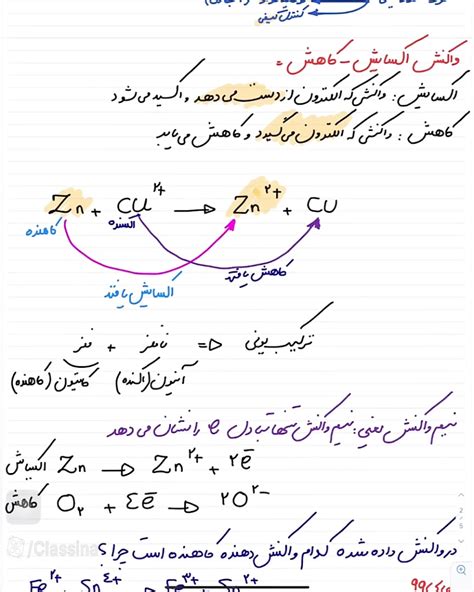 کنترل کیفی
واکنش اکسایش - کاهش =
اکسایش : واکنشی که الکترون از دست می‌دهد و اکسید می‌شود
کاهش : واکنشی که الکترون می‌گیرد و کاهش می‌یابد
Zn + Cu²⁺ → Zn²⁺ + Cu
کاهنده اکسنده
کاهش یافته
اکسایش یافته
ترکیب یونی => نافلز + فلز
آنیون (اکسنده) کاتیون (کاهنده)
نیم واکنش یعنی: نیم واکنش تنها تبادل e را نشان می‌دهد
اکسایش Zn → Zn²⁺ + ۲e⁻
کاهش O₂ + ٤e⁻ → ۲O²⁻
در واکنش داده شده کدام واکنش دهنده کاهنده است چرا؟
/Classina
Fe²⁺ + Sn⁴⁺ → Fe³⁺ + Sn²⁺
۹۹